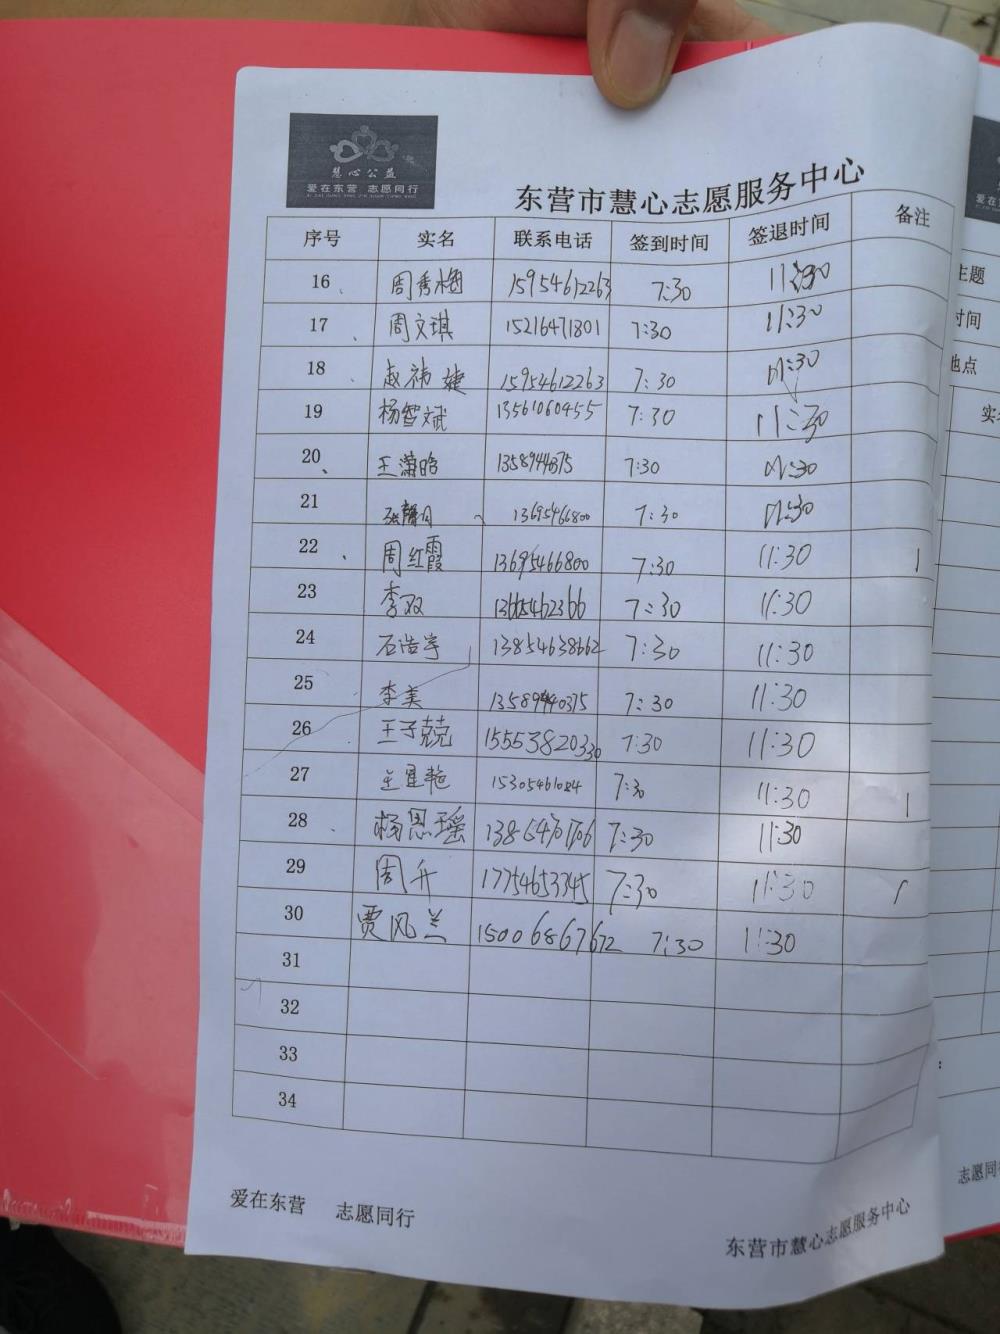 慧心公益
爱在东营 志愿同行
东营市慧心志愿服务中心
序号 实名 联系电话 签到时间 签退时间 备注
16 周秀梅 15954612263 7:30 11:30
17 周文琪 15216471801 7:30 11:30
18 赵祎婕 15954612263 7:30 11:30
19 杨智斌 13561060455 7:30 11:30
20 王潇晗 7:30 11:30
21 13695466800 7:30 11:30
22 周红霞 13695466800 7:30 11:30
23 李双 7:30 11:30
24 石浩宇 13854638662 7:30 11:30
25 李美 13589440375 7:30 11:30
26 王子兢 15553820330 7:30 11:30
27 王星艳 7:30 11:30
28 杨恩瑶 7:30 11:30
29 周升 17754653345 7:30 11:30
30 贾风兰 15006867672 7:30 11:30
31
32
33
34
爱在东营 志愿同行
东营市慧心志愿服务中心
爱在
主题
时间
地点
实
志愿同